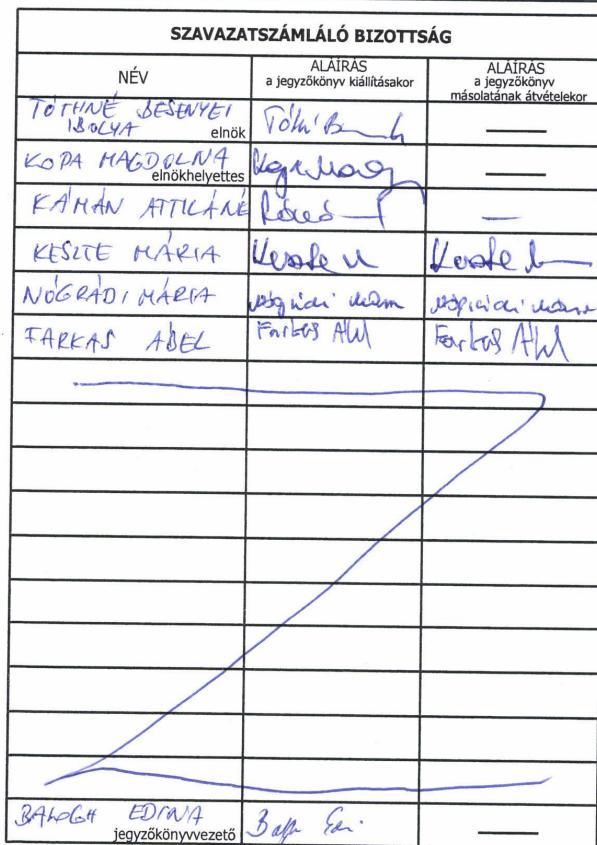 SZAVAZATSZÁMLÁLÓ BIZOTTSÁG
NÉV
ALÁÍRÁS
a jegyzőkönyv kiállításakor
ALÁÍRÁS
a jegyzőkönyv
másolatának átvételekor
TÓTHNÉ BESENYEI
IBOLYA elnök
KOPA MAGDOLNA
elnökhelyettes
KÁMÁN ATTILÁNÉ
KESZTE MÁRIA
NÓGRÁDI MÁRIA Nógrádi Mária Nógrádi Mária
FARKAS ÁBEL Farkas Ábel Farkas Ábel
BALOGH EDINA
jegyzőkönyvvezető